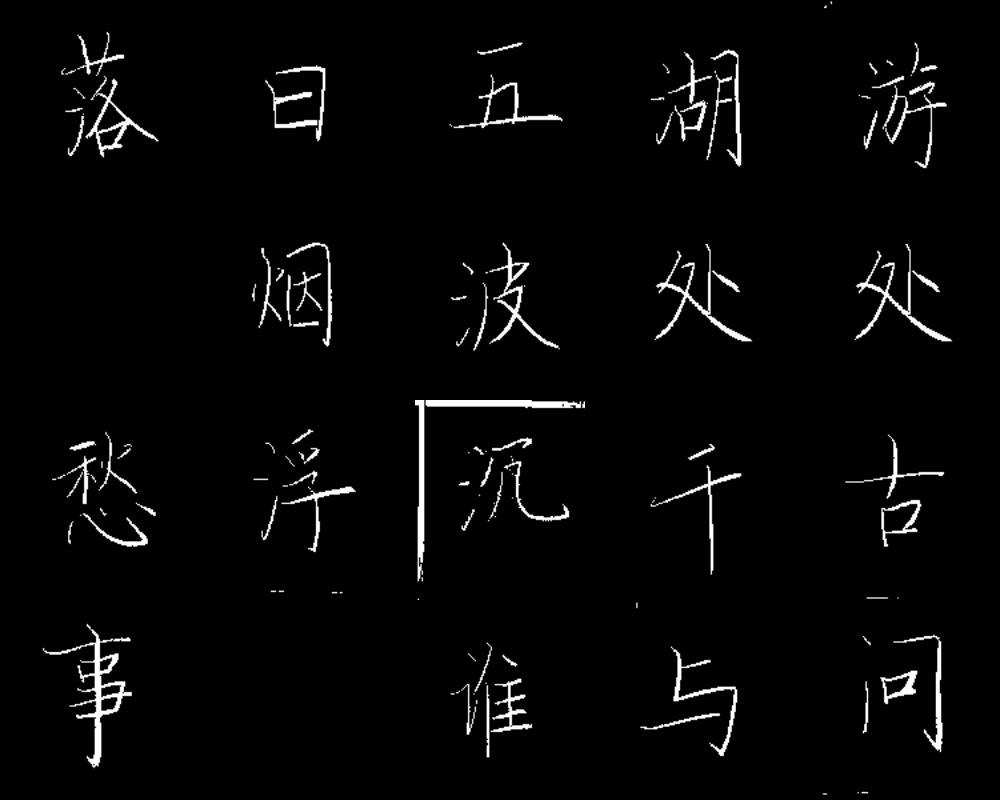 落日五湖游
烟波处处
愁浮沉千古
事谁与问